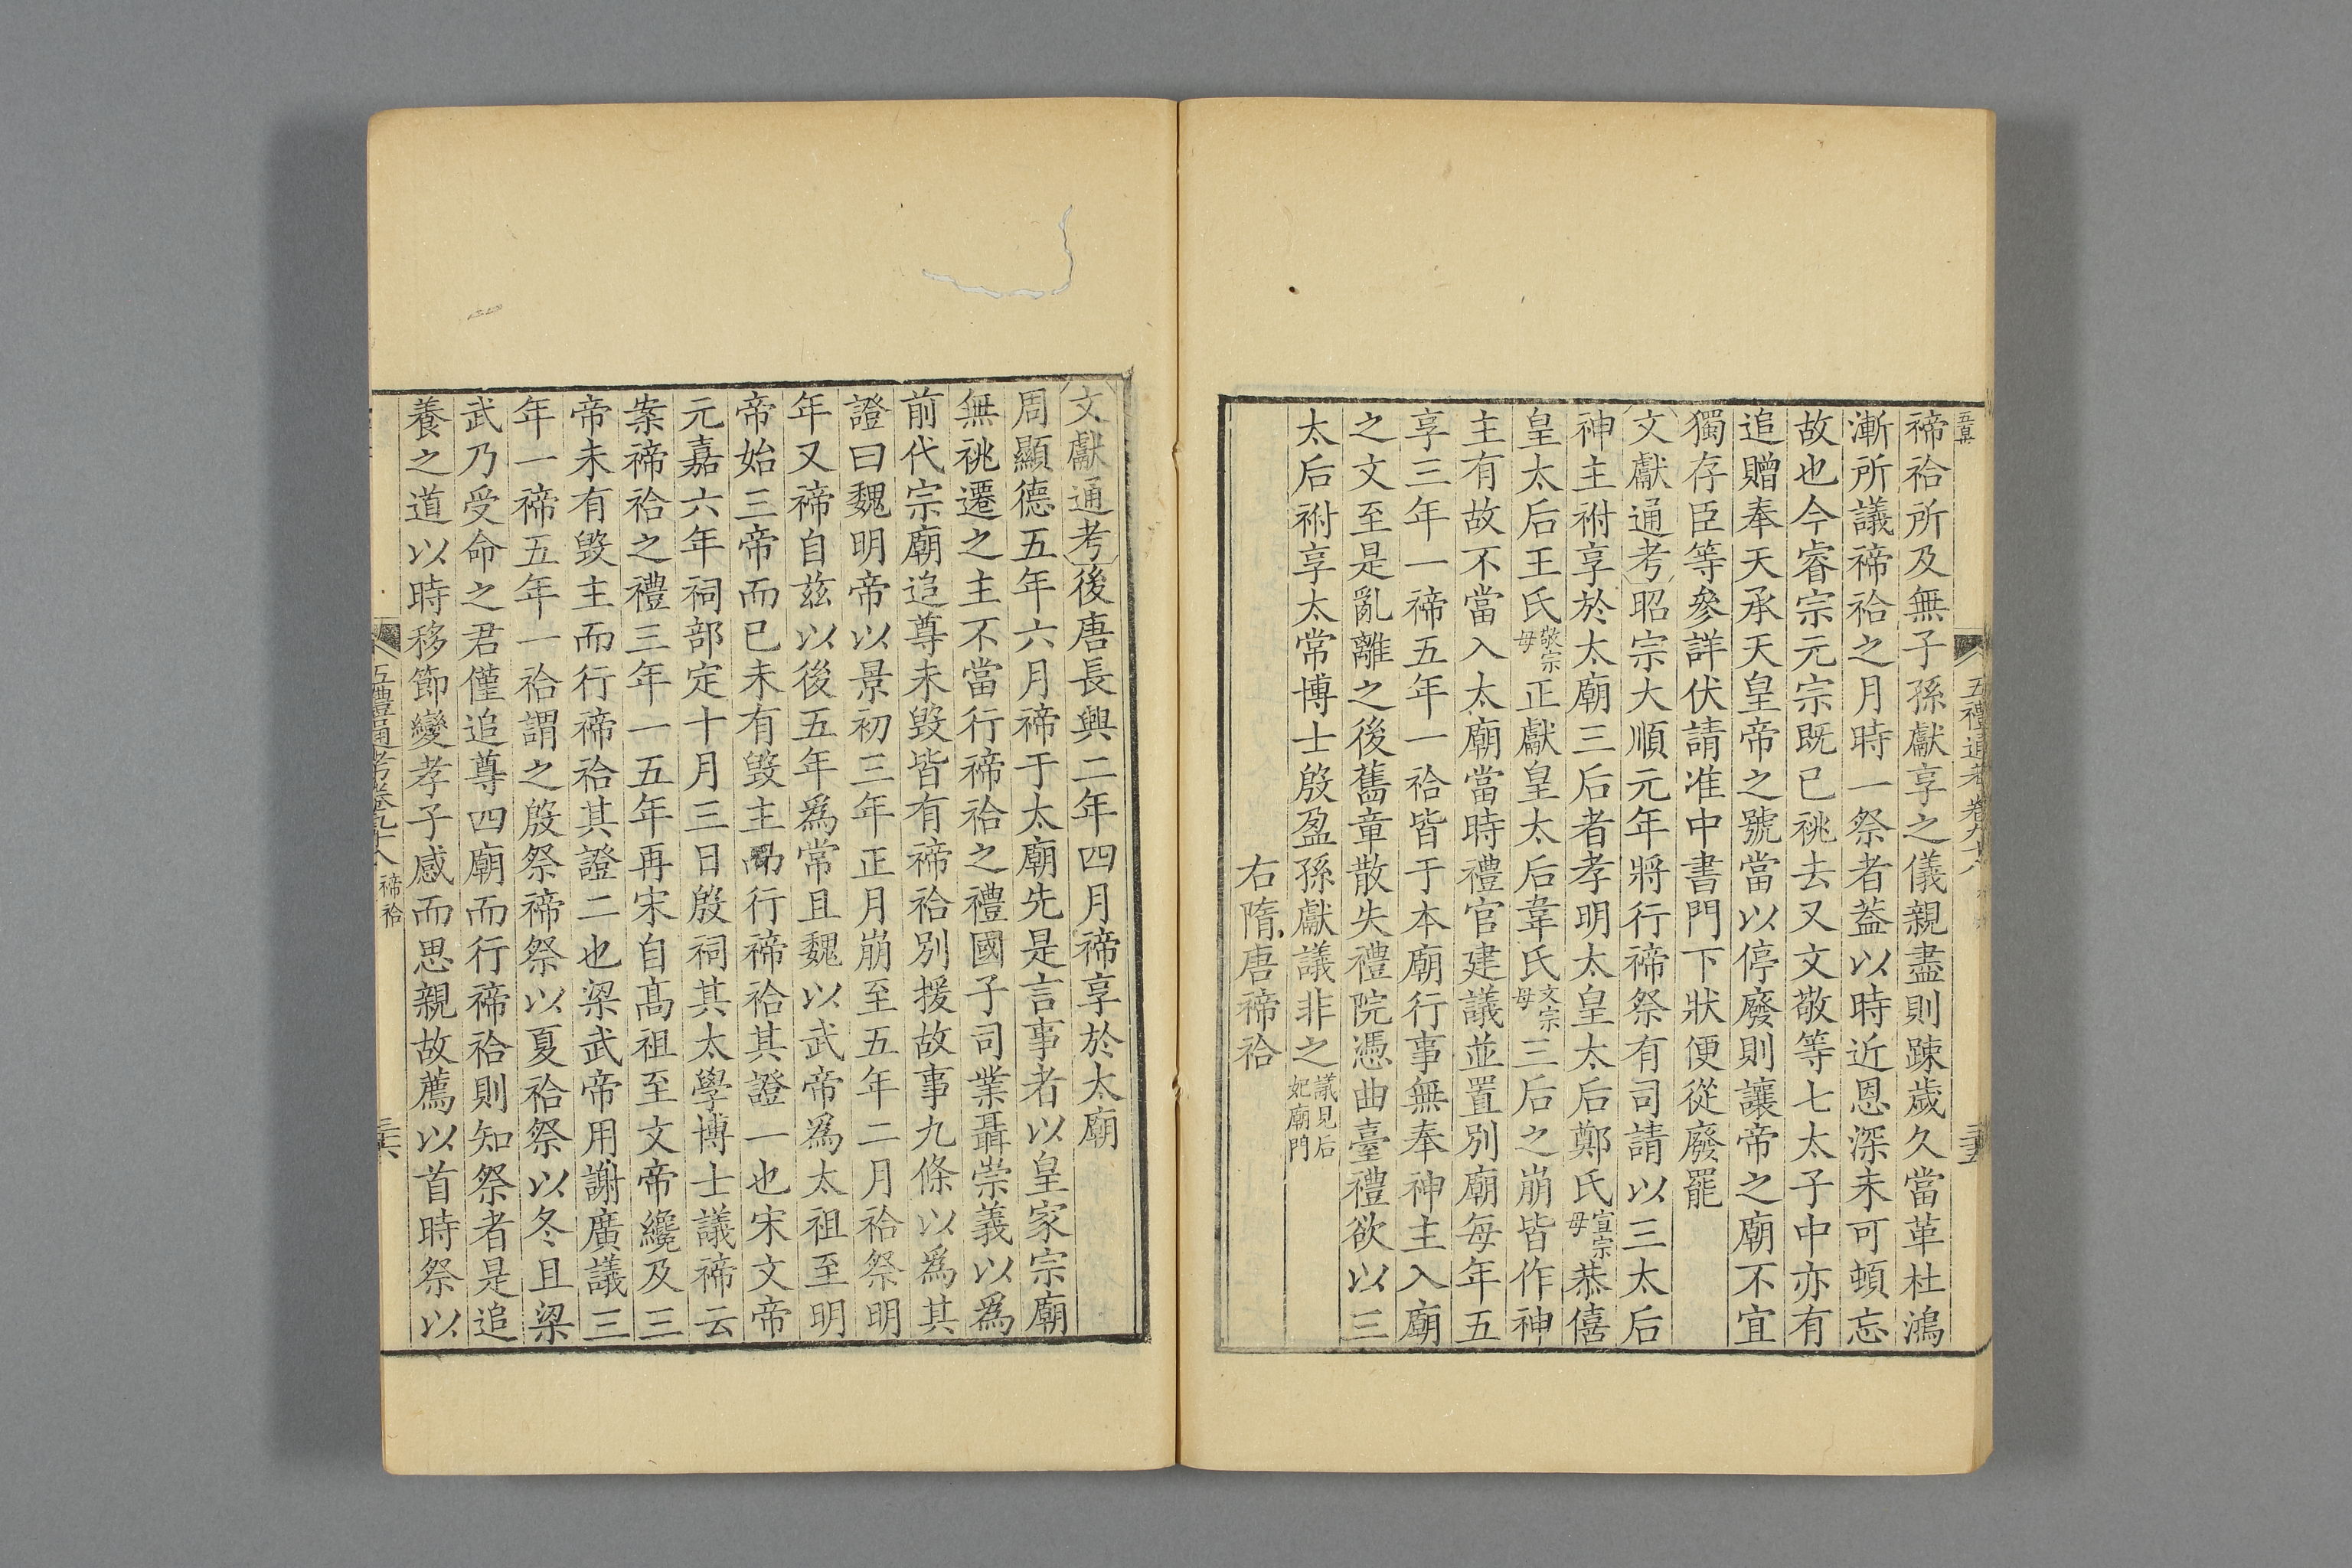 禘祫所及無子孫獻享之儀親盡則踈歲久當革杜鴻
漸所議禘祫之月時一祭者葢以時近恩深未可頓忘
故也今睿宗元宗既已祧去又文敬等七太子中亦有
追贈奉天承天皇帝之號當以停廢則讓帝之廟不宜
獨存臣等參詳伏請准中書門下狀便從廢罷
文獻通考昭宗大順元年將行禘祭有司請以三太后
神主祔享於太廟三后者孝明太皇太后鄭氏宣宗母恭僖
皇太后王氏敬宗母正獻皇太后韋氏文宗母三后之崩皆作神
主有故不當入太廟當時禮官建議並置別廟每年五
享三年一禘五年一祫皆于本廟行事無奉神主入廟
之文至是亂離之後舊章散失禮院憑曲臺禮欲以三
太后祔享太常博士殷盈孫獻議非之議見后妃廟門
右隋唐禘祫
五禮通考卷九十八
三五
文獻通考後唐長興二年四月禘享於太廟
周顯德五年六月禘于太廟先是言事者以皇家宗廟
無祧遷之主不當行禘祫之禮國子司業聶崇義以爲
前代宗廟追尊未毀皆有禘祫別援故事九條以爲其
證曰魏明帝以景初三年正月崩至五年二月祫祭明
年又禘自茲以後五年爲常且魏以武帝爲太祖至明
帝始三帝而已未有毀主而行禘祫其證一也宋文帝
元嘉六年祠部定十月三日殷祠其太學博士議禘云
案禘祫之禮三年一五年再宋自高祖至文帝纔及三
帝未有毀主而行禘祫其證二也梁武帝用謝廣議三
年一禘五年一祫謂之殷祭禘祭以夏祫祭以冬且梁
武乃受命之君僅追尊四廟而行禘祫則知祭者是追
養之道以時移節變孝子感而思親故薦以首時祭以
五禮通考卷九十八
禘祫
三六